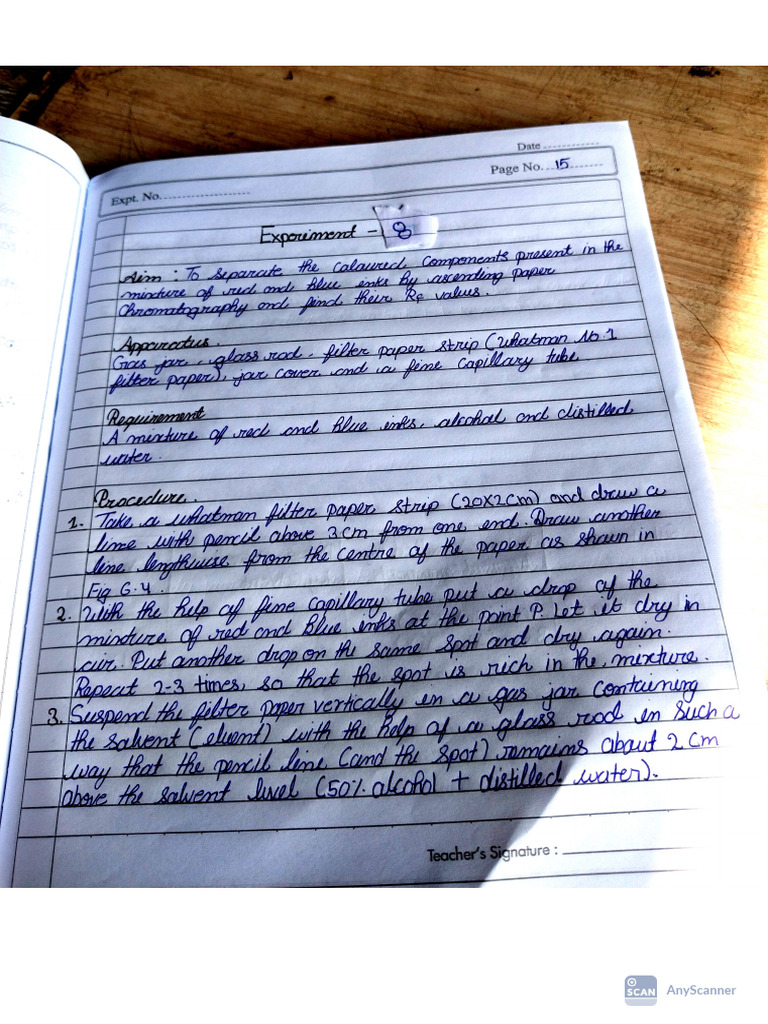 Date ............
Page No. 15
Expt. No.
Experiment - 8
Aim : To separate the coloured components present in the
mixture of red and blue inks by ascending paper
chromatography and find their Rf values.
Apparatus.
Gas jar, glass rod, filter paper strip (Whatman No. 1
filter paper), jar cover and a fine capillary tube
Requirement
A mixture of red and blue inks, alcohol and distilled
water.
Procedure.
1. Take a whatman filter paper strip (20x2cm) and draw a
line with pencil above 3cm from one end. Draw another
line lengthwise from the centre of the paper as shown in
Fig 6.4.
2. With the help of fine capillary tube put a drop of the
mixture of red and blue inks at the point P. Let it dry in
air. Put another drop on the same spot and dry again.
Repeat 2-3 times, so that the spot is rich in the mixture.
3. Suspend the filter paper vertically in a gas jar containing
the solvent (eluent) with the help of a glass rod in such a
way that the pencil line (and the spot) remains about 2 cm
above the solvent level (50% alcohol + distilled water).
Teacher's Signature :
SCAN AnyScanner